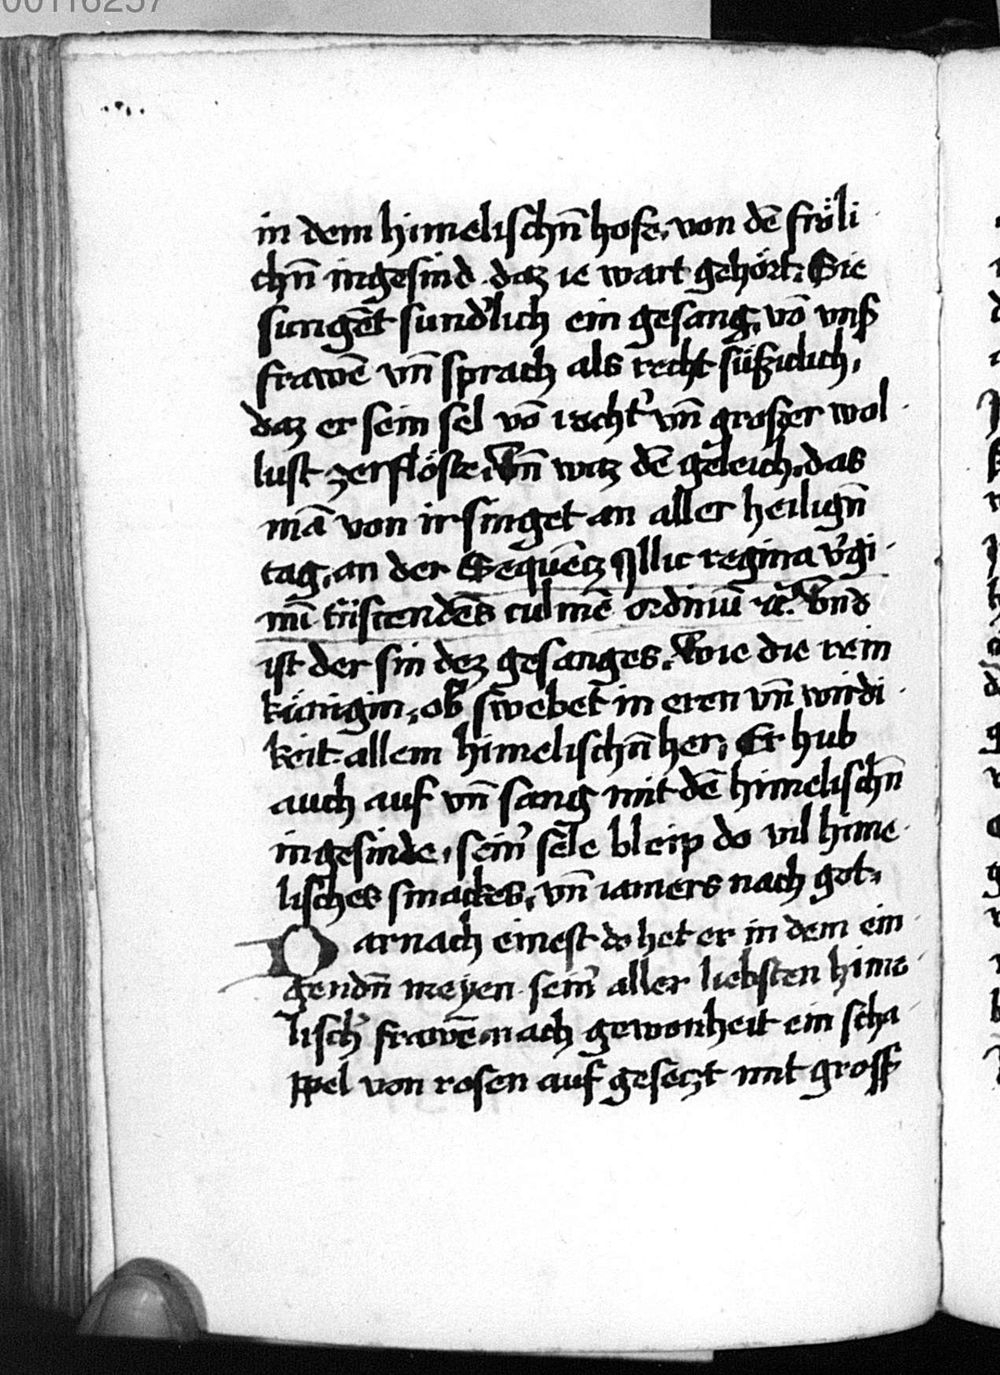 00116237
in dem himelischn̄ hofe, von dē frőli
chn̄ ingesind daz ie wart gehört. Sie
sungēt sund'lich ein gesang, vō vnß
frawē vn̄ sprach als recht süßiclich,
daz er sein sel vō recht' vn̄ grosser wol
lust zerflőste. Vn̄ waz dē geleich, das
mā von ir singet an aller heilign̄
tag, an der Sequēcz Illic regina v'gi
nū trāscendēs culmē ordinū ⁊c̄. Vnd
ist der sin dez gesanges. Wie die rein
künigin, ob' swebet in eren vn̄ wirdi
keit allem himelischn̄ her, Er hub
auch auf vn̄ sang mit dē himelischn̄
ingesinde, sein' sele bleip do vil hime
lisches smackes, vn̄ iamers nach got,
Darnach einest do het er in dem ein
gendn̄ meyen sein' aller liebsten hime
lisch' frawē nach gewonheit ein scha
ppel von rosen auf geseczt mit gross'